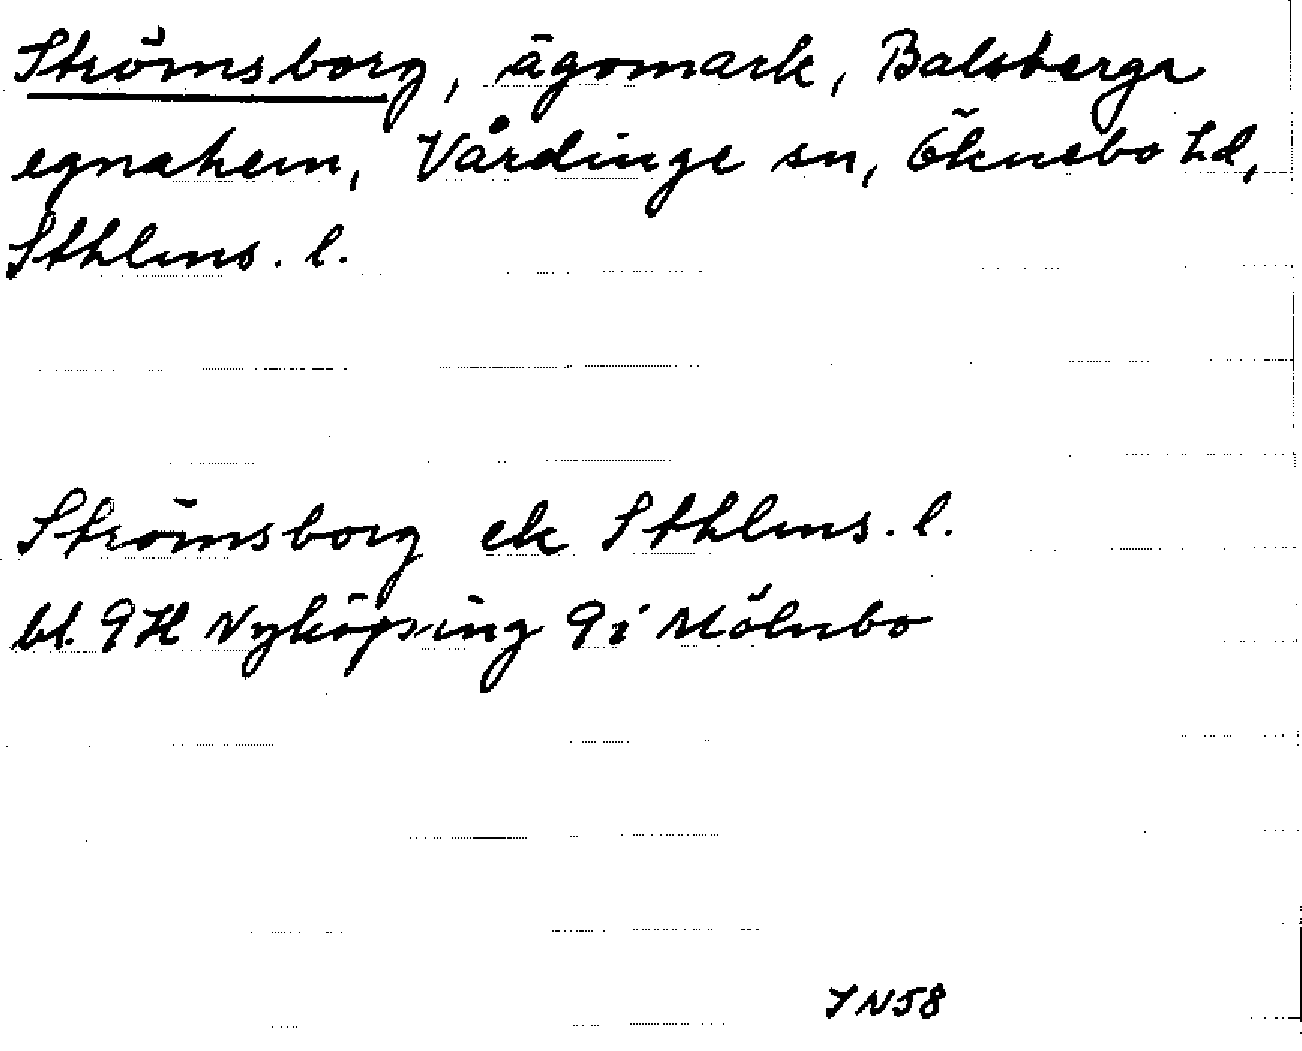 Strömsborg, ägomark, Balsberga
egnahem, Vårdinge sn, Öknebo hd,
Sthlms. l.
Strömsborg ek Sthlms. l.
bl. 9H Nyköping 9i Mölnbo
IN58